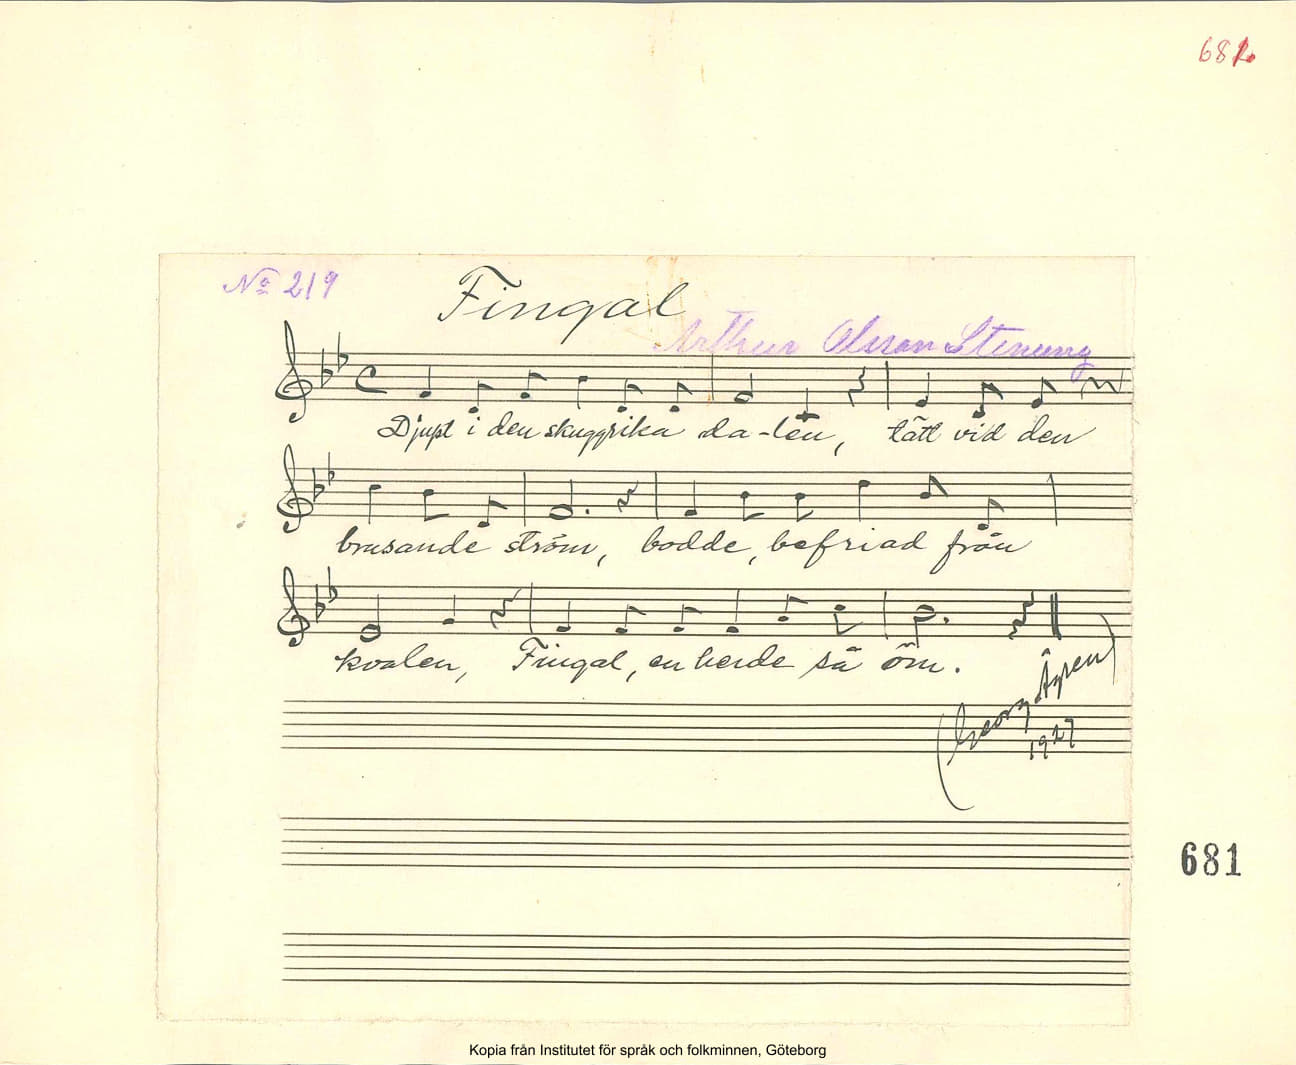 681
No 219
Fingal
Arthur Olsson Stenung
Djupt i den skuggrika da-len, tätt vid den
brusande ström, bodde, befriad från
kvalen, Fingal, en herde så öm.
(Georg Ågren)
1927
681
Kopia från Institutet för språk och folkminnen, Göteborg